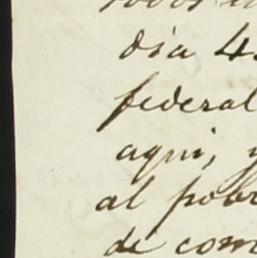 dia 4
federal
aqui, y
al pobr
de com